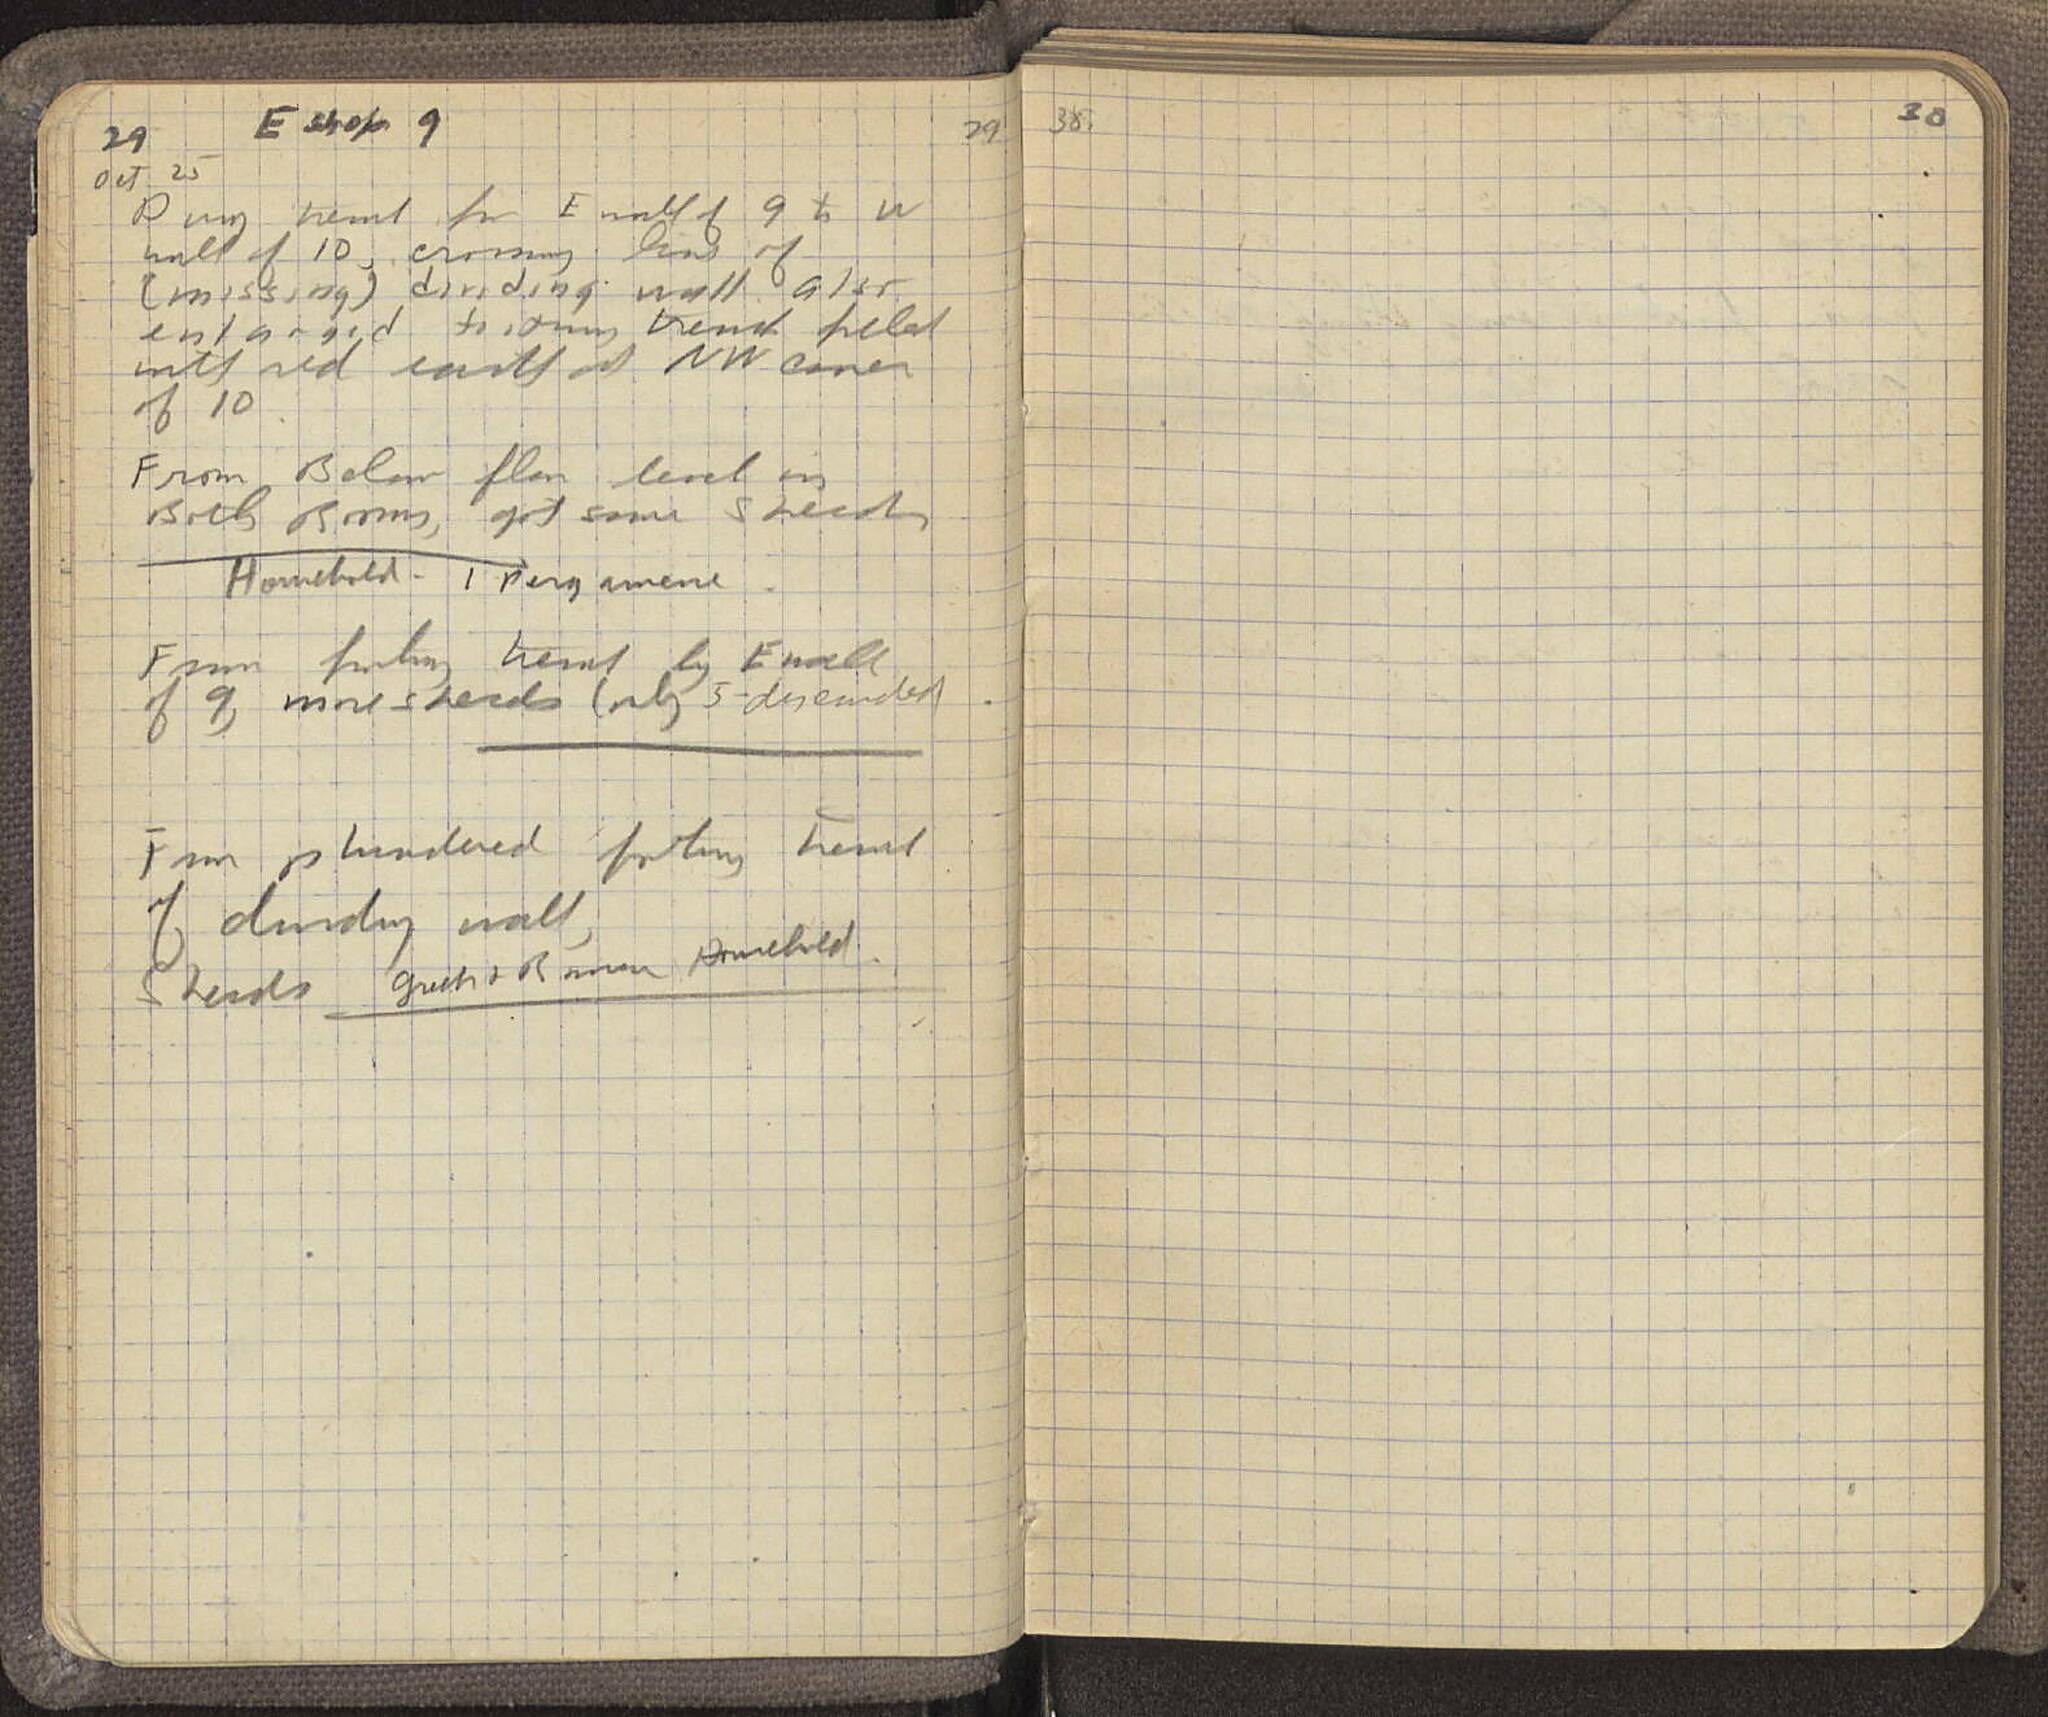 29 E shop 9 29
Oct 25
Dug trench fr E wall of 9 to W
wall of 10, crossing line of
(missing) dividing wall. Also
enlarged footing trench filled
with red earth at NW corner
of 10.
From Below floor level in
Both Rooms, got some sherds
Household - 1 Pergamene.
From footing trench by E wall
of 9, more sherds (only 5 - discarded).
From plundered footing trench
of dividing wall,
Sherds Greek & Roman Household.
30. 30